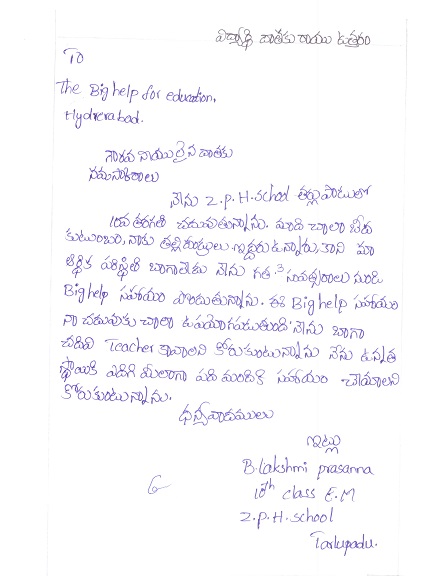 విద్యార్థి దాతకు రాయు ఉత్తరం
To
The Big help for education,
Hyderabad.
గౌరవ నీయులైన దాతకు
నమస్కారాలు
నేను Z.P.H.school తర్లుపాడులో
10వ తరగతి చదువుతున్నాను. మాది చాలా బీద
కుటుంబం, నాకు తల్లిదండ్రులు ఇద్దరు ఉన్నారు, కాని మా
ఆర్థిక పరిస్థితి బాగాలేదు నేను గత 3 సంవత్సరాలు నుండి
Big help సహాయం పొందుతున్నాను. ఈ Big help సహాయం
నా చదువుకు చాలా ఉపయోగపడుతుంది నేను బాగా
చదివి Teacher కావాలని కోరుకుంటున్నాను నేను ఉన్నత
స్థాయికి ఎదిగి మీలాగా పది మందికి సహాయం చేయాలని
కోరుకుంటున్నాను.
ధన్యవాదములు
ఇట్లు
B.Lakshmi prasanna
10th class E.M
Z.P.H.school
Tarlupadu.